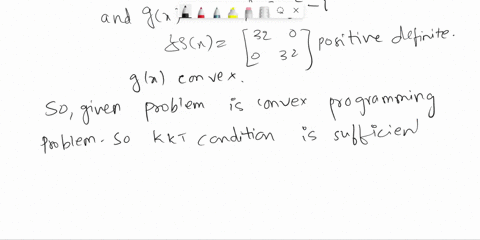 and g(x,
- 1
δS(x) = [32 0 0 32] positive definite.
g(x) convex.
So, given problem is convex programming
problem. So KKT condition is sufficien